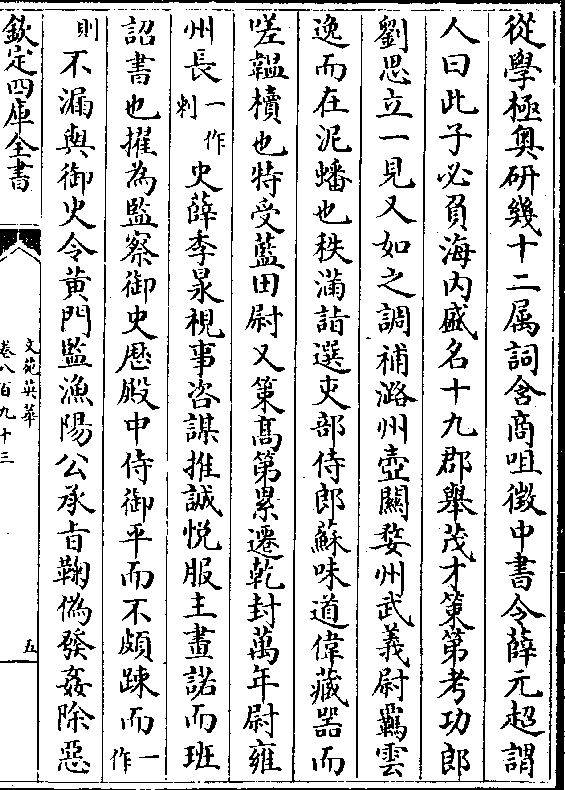 從學極奧研幾十二属詞含商咀徴中書令薛元超謂
人曰此子必負海内盛名十九郡舉茂才策第考功郎
劉思立一見又如之調補潞州壺關婺州武義尉羈雲
逸而在泥蟠也秩滿詣選吏部侍郎蘇味道偉藏器而
嗟韞櫝也特受藍田尉又第髙第累遷乾封萬年尉雍
州長一作刺史薛季㫤視事咨謀推誠悦服主畫諾而班
詔書也擢為監察御史歴殿中侍御平而不頗踈而一作
則不漏與御史令黄門監漁陽公承㫖鞠偽發姦除惡
欽定四庫全書
文苑英華
卷八百九十三
五